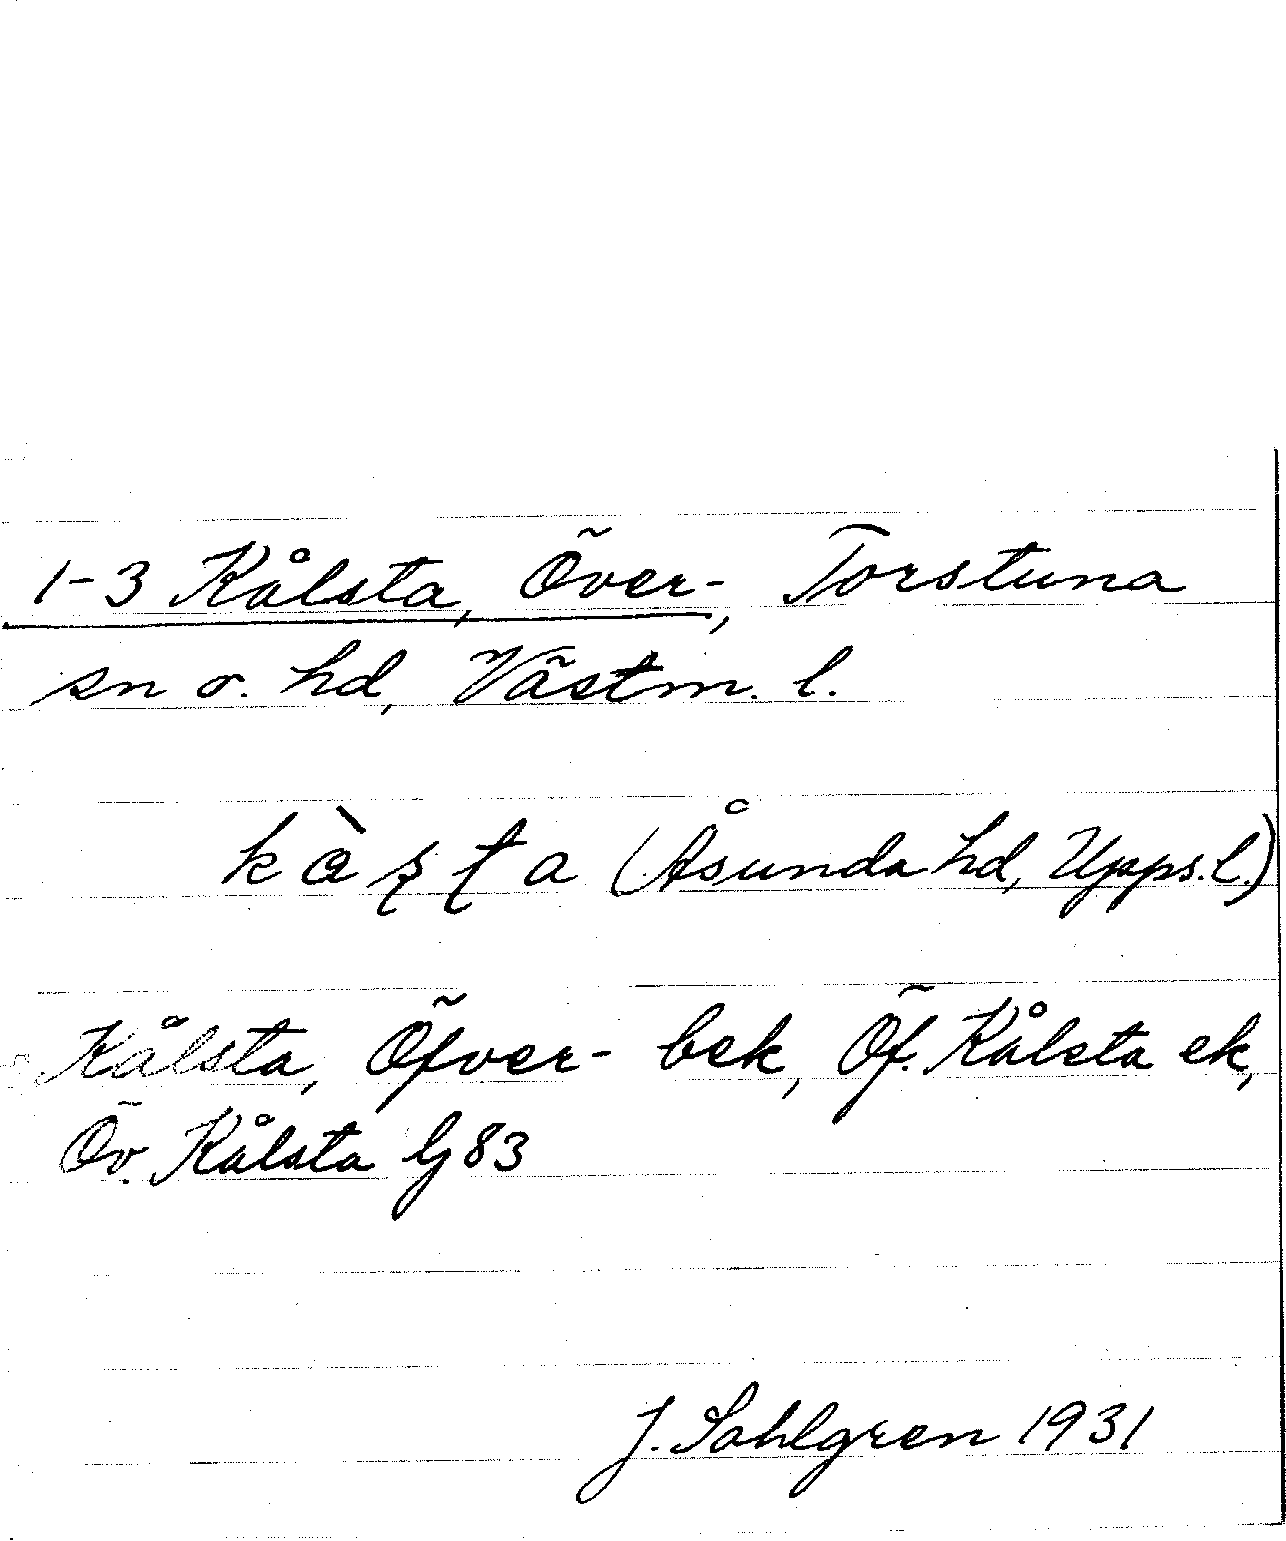 1-3 Kålsta, Över-, Torstuna
sn o. hd, Västm. l.
kòʂʈa (Åsunda hd, Upps. l.)
Kålsta, Öfver- bek, Öf. Kålsta ek,
Öv. Kålsta G 83
J. Sahlgren 1931